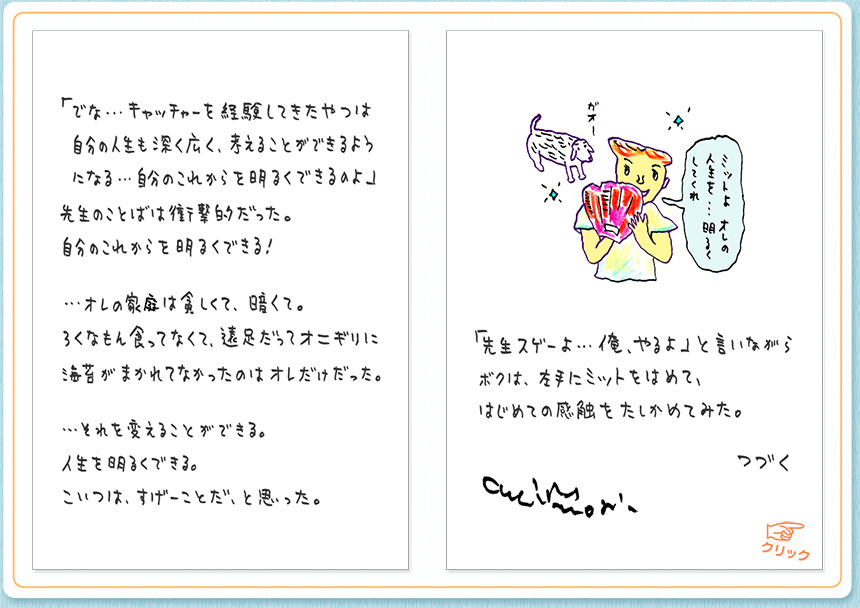 「でな…キャッチャーを経験してきたやつは
自分の人生も深く広く、考えることができるよう
になる…自分のこれからを明るくできるのよ」
先生のことばは衝撃的だった。
自分のこれからを明るくできる!
…オレの家庭は貧しくて、暗くて。
ろくなもん食ってなくて、遠足だってオニギリに
海苔がまかれてなかったのはオレだけだった。
…それを変えることができる。
人生を明るくできる。
こいつは、すげーことだ、と思った。
ガオー
ミットよ オレの
人生を…明るく
してくれ
「先生スゲーよ…俺、やるよ」と言いながら
ボクは、左手にミットをはめて、
はじめての感触をたしかめてみた。
つづく
クリック